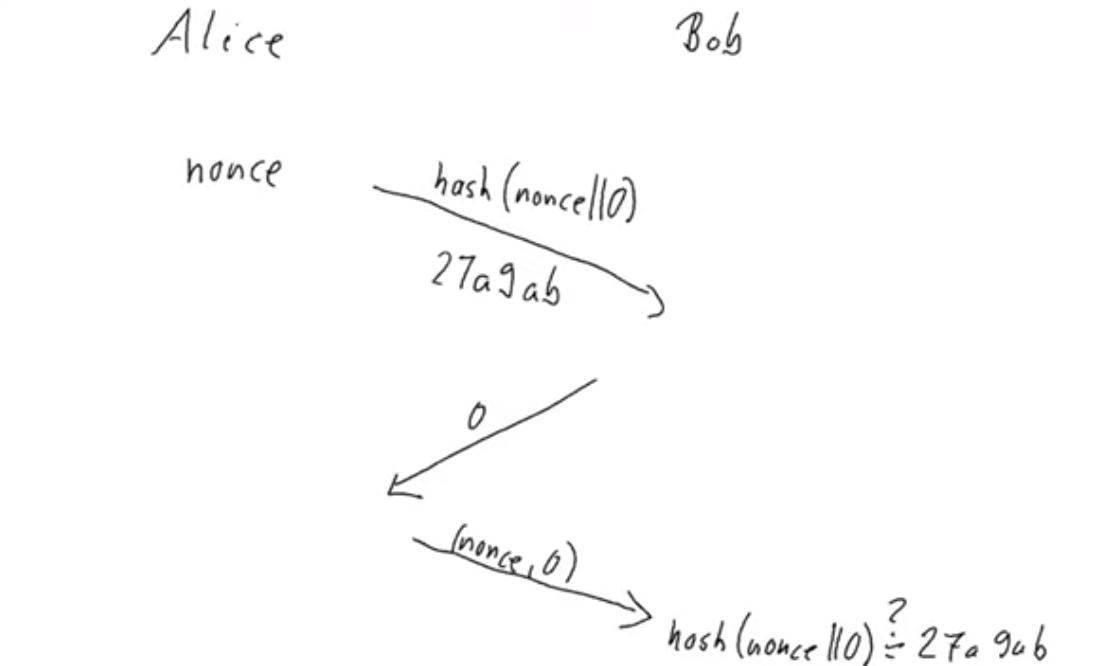 Alice Bob
nonce
hash (nonce||0)
27a9ab
0
(nonce, 0)
?
hash (nonce ||0) = 27a9ab